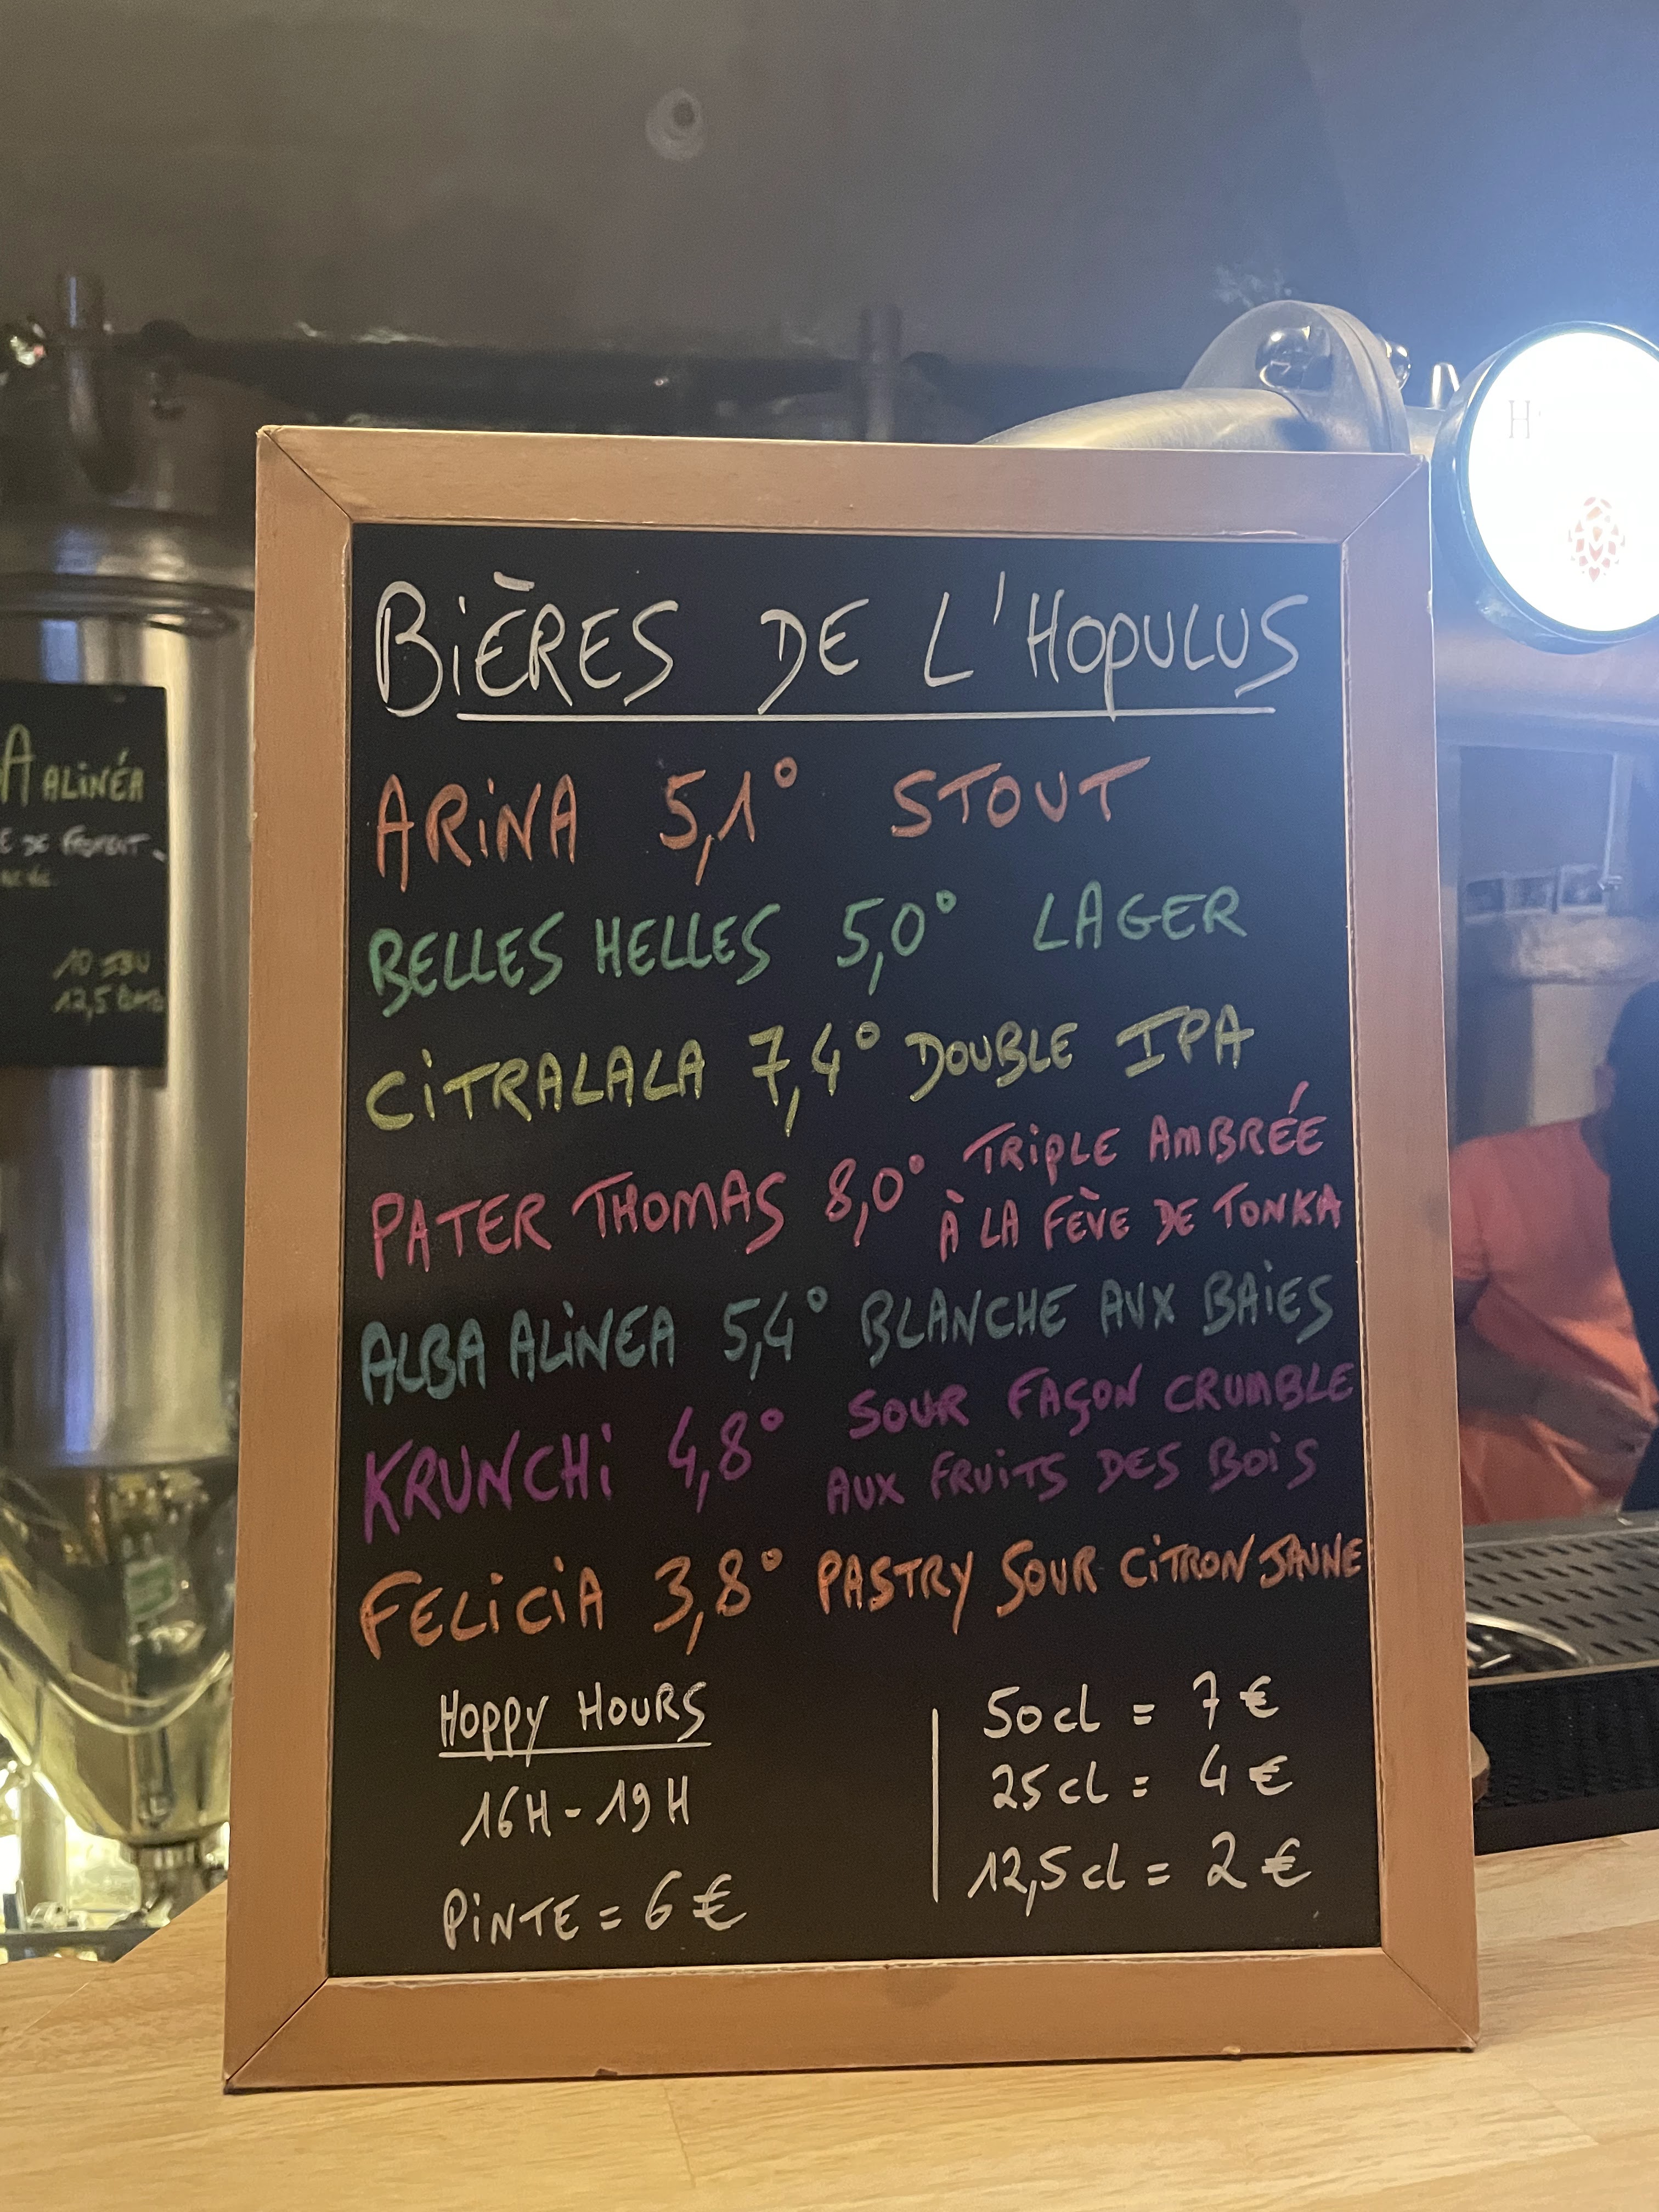 BIÈRES DE L'HOPULUS
ARINA 5,1° STOUT
BELLES HELLES 5,0° LAGER
CITRALALA 7,4° DOUBLE IPA
PATER THOMAS 8,0° TRIPLE AMBRÉE
À LA FÈVE DE TONKA
ALBA ALINEA 5,4° BLANCHE AUX BAIES
KRUNCHI 4,8° SOUR FAÇON CRUMBLE
AUX FRUITS DES BOIS
FELICIA 3,8° PASTRY SOUR CITRON JAUNE
HOPPY HOURS
16H-19H
PINTE = 6€
50cl = 7€
25cl = 4€
12,5cl = 2€
A ALINÉA
E DE FROMENT
10 IBU
12,5
H